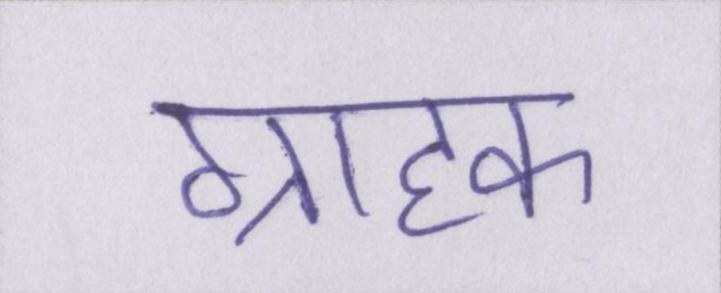 ग्राहक